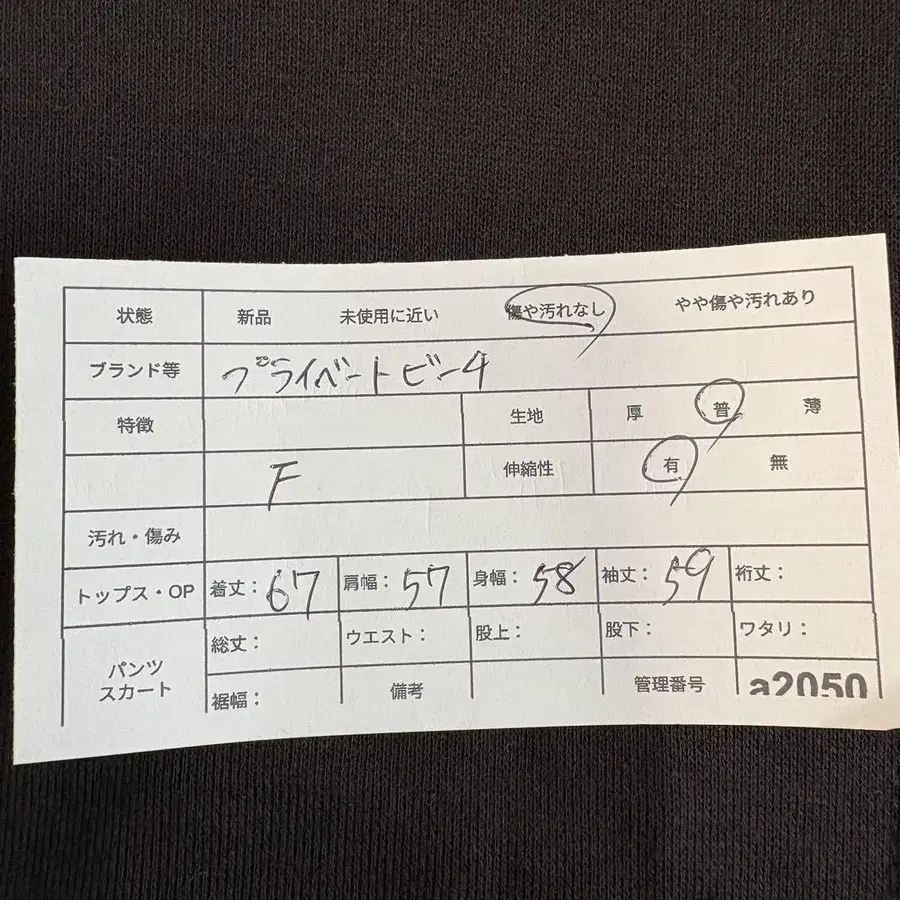 状態 新品 未使用に近い 傷や汚れなし やや傷や汚れあり
ブランド等 プライベートビーチ
特徴 生地 厚 普 薄
F 伸縮性 有 無
汚れ・傷み
トップス・OP 着丈: 67 肩幅: 57 身幅: 58 袖丈: 59 裄丈:
パンツ スカート 総丈: ウエスト: 股上: 股下: ワタリ:
裾幅: 備考 管理番号 a2050